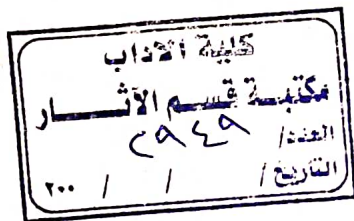 كلية الآداب
مكتبة قسم الآثار
العدد/ ٢٩٤٩
التاريخ/ / / ٢٠٠